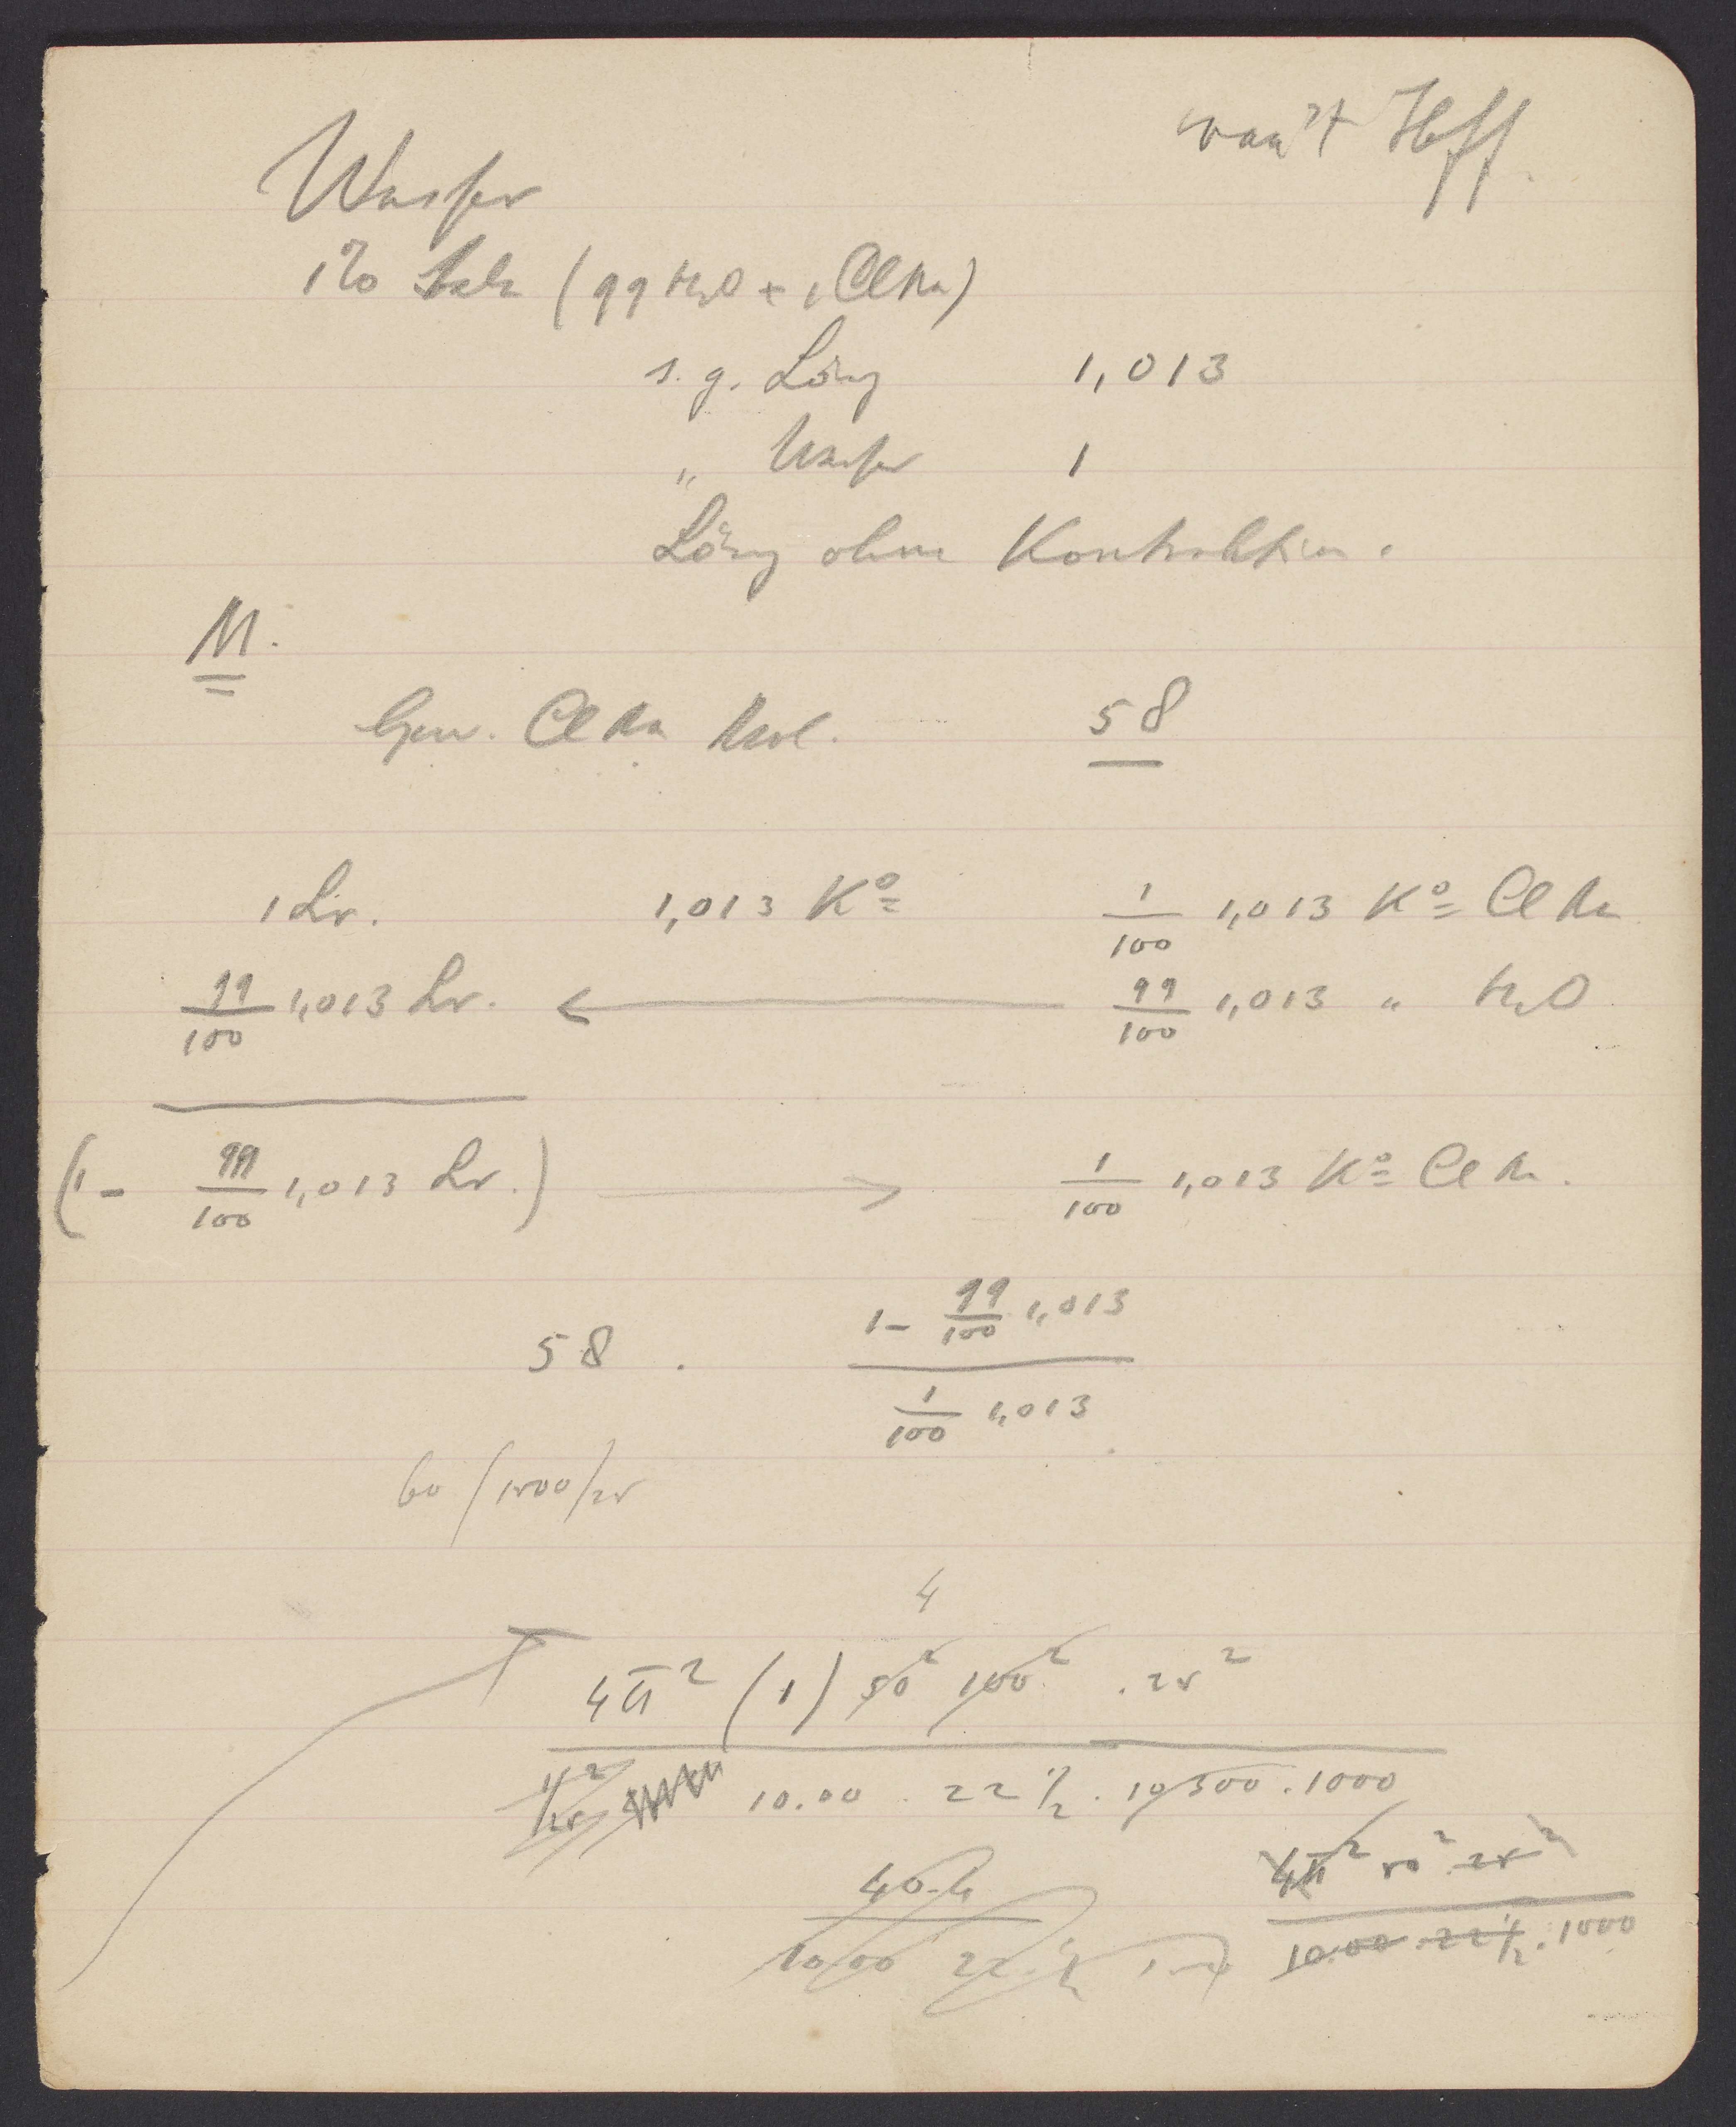 van't Hoff.
Wasser
1% Salz (99 H2O + 1 ClNa)
s. g. Lösng 1,013
„ Wasser 1
Lösng ohne Kontraktion.
M.
Gew. ClNa Mol. 58
1 Lr. 1,013 Kº 1/100 1,013 Kº ClNa
99/100 1,013 Lr. ← 99/100 1,013 „ H2O
(1 - 99/100 1,013 Lr.) → 1/100 1,013 Kº ClNa.
58 . (1 - 99/100 1,013) / (1/100 1,013)
60 / 1500 / 25
4
4π² (1) 50² 100² . 25²
10.00 . 22 1/2 . 10300 . 1000
40.4 4π² 50² 25²
10.00 22 1/2 10.00 . 22 1/2 . 1000